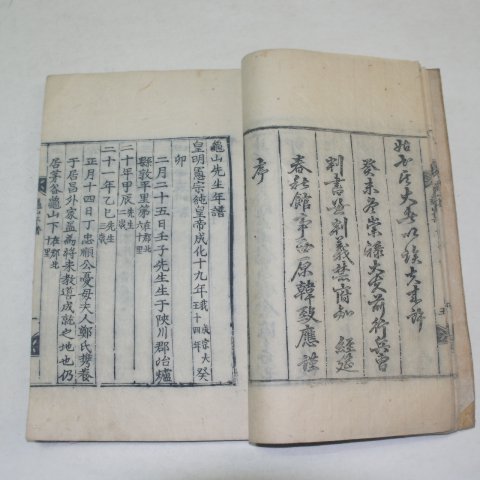 癸未冬崇祿大夫前行兵曹
判書兼判義禁府知 經筵
春秋館事西原韓致應謹
序
龜山先生年譜
皇明憲宗純皇帝成化十九年我 成宗大王十四年癸
卯
二月二十五日壬子先生生于陜川郡冶爐
縣敦平里第在郡北六十里
二十年甲辰先生二歲
二十一年乙巳先生三歲
正月十四日丁忠順公憂母夫人鄭氏携養
于居昌外家盖爲將來敎導成就之地也仍
居茅谷龜山下在郡北十里